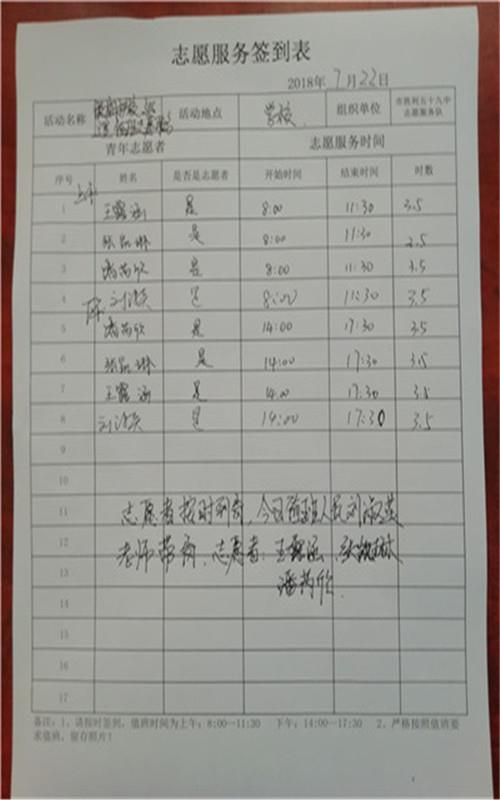 志愿服务签到表
2018年7月22日
活动名称 活动地点 学校 组织单位 市胜利五十九中志愿服务队
青年志愿者 志愿服务时间
序号 姓名 是否是志愿者 开始时间 结束时间 时数
上午
1 王露涵 是 8:00 11:30 3.5
2 是 8:00 11:30 3.5
3 潘芮欣 是 8:00 11:30 3.5
4 刘淑英 是 8:00 11:30 3.5
下午
5 潘芮欣 是 14:00 17:30 3.5
6 是 14:00 17:30 3.5
7 王露涵 是 14:00 17:30 3.5
8 刘淑英 是 14:00 17:30 3.5
9
10
11 志愿者按时到岗,今日值班人员刘淑英
12 老师带商,志愿者:王露涵
13 潘芮欣
14
15
16
17
备注:1、请按时签到,值班时间为上午:8:00—11:30 下午:14:00—17:30 2、严格按照值班要
求值班,留存照片!